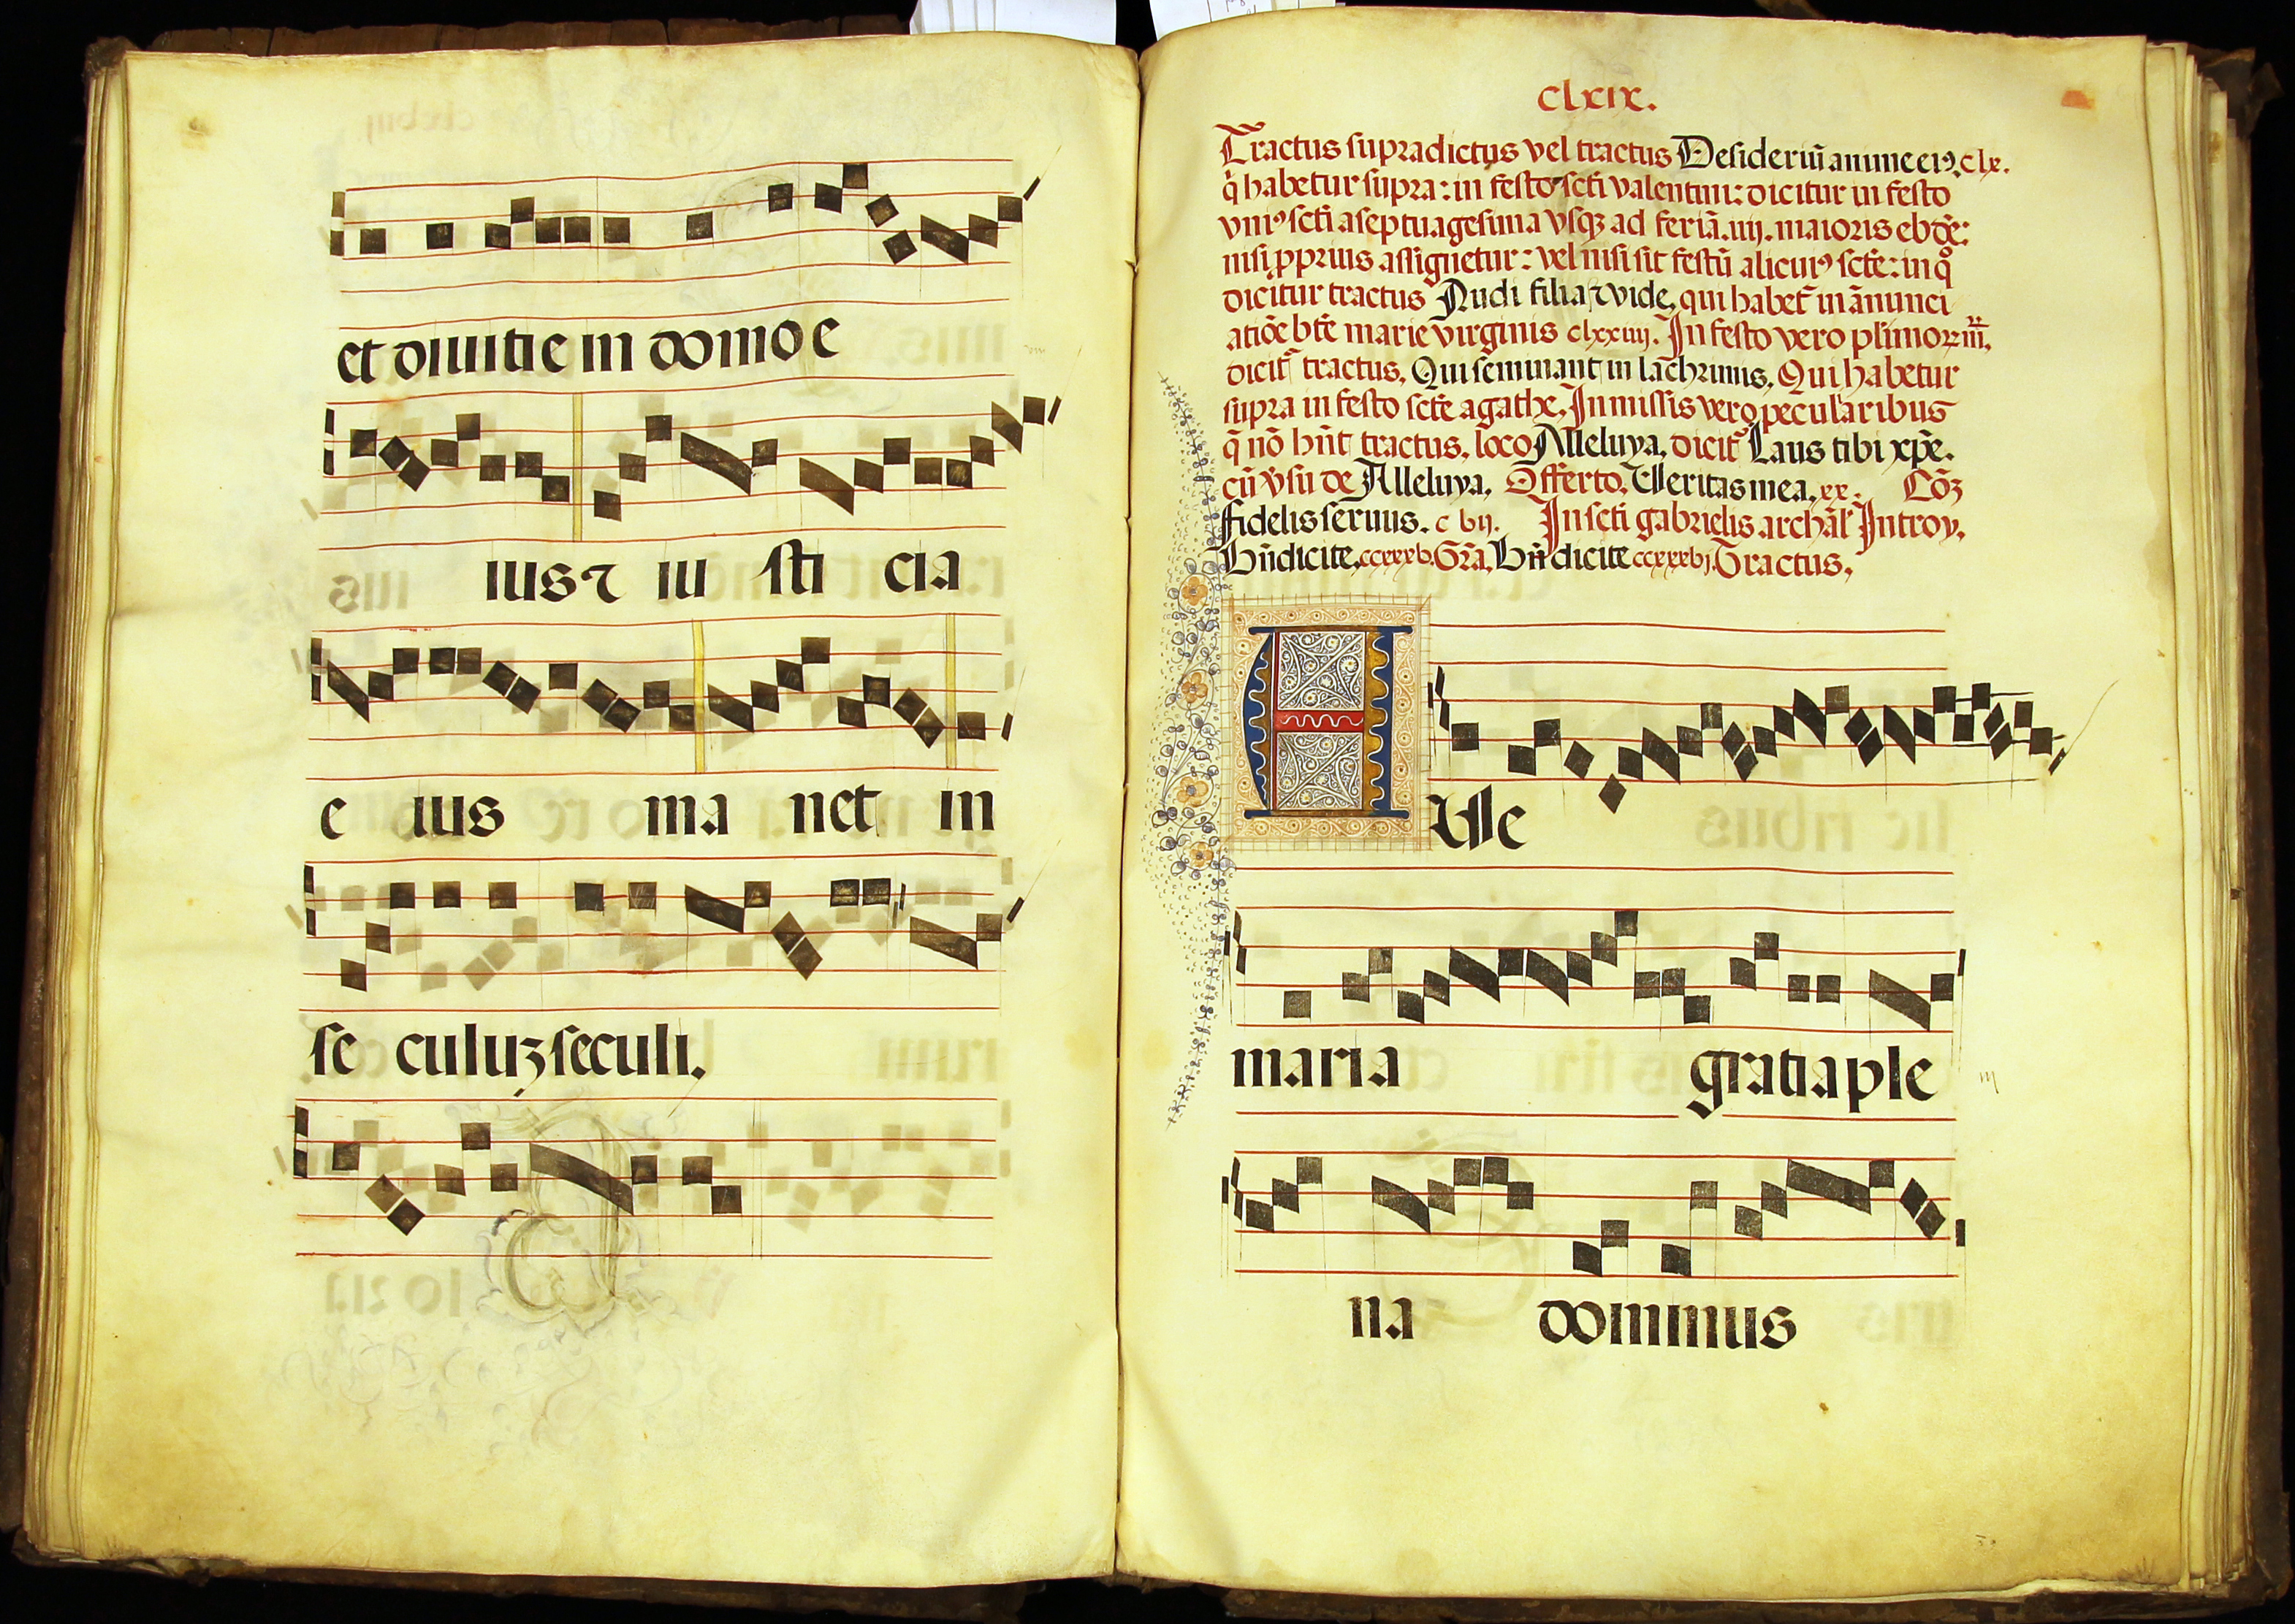 et diuitie in domo e
ius ⁊ iu sti cia
e ius ma net in
se culuʒ seculi.
clxix.
Tractus supradictus vel tractus Desideriū anime eiꝰ. clx.
q̄ habetur supra: in festo scti valentini: dicitur in festo
vniꝰ scti a septuagesima vsqʒ ad feriā .iiij. maioris ebde:
nisi ꝓprius assignetur: vel nisi sit festū alicuiꝰ scte: in qͦ
dicitur tractus Audi filia ⁊ vide, qui habet̄ in ānunci
atiōe bt̄e marie virginis clxxiiij. In festo vero pl̄imorum
dicit̄ tractus, Qui seminant in lachrimis, Qui habetur
supra in festo scte agathe, In missis vero peculiaribus
q̄ nō hn̄t tractus, loco Alleluya, dicit̄ Laus tibi xp̄e.
cū v̄su de Alleluya, Offerto, Veritas mea, xx. Cōʒ
fidelis seruus. c vij. In scti gabrielis archāl' Introy,
Bn̄dicite, ccxxxv. Gr̄a, Bn̄dicite ccxxxvj. Tractus,
A Ve
maria gratia ple
na dominus